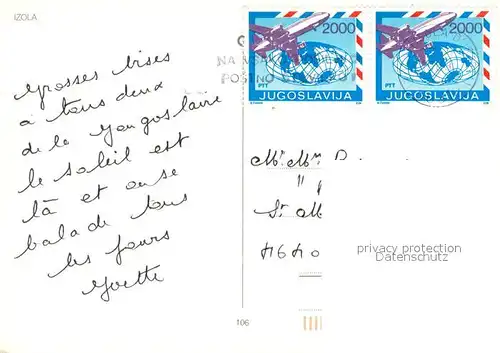 IZOLA
Grosses bises
à tous deux
de la Yougoslavie
le soleil est
là et on se
balade tous
les jours
Yvette
2000
PTT
JUGOSLAVIJA
2000
PTT
JUGOSLAVIJA
Mr. Mm D.
"
St M
privacy protection
Datenschutz
106